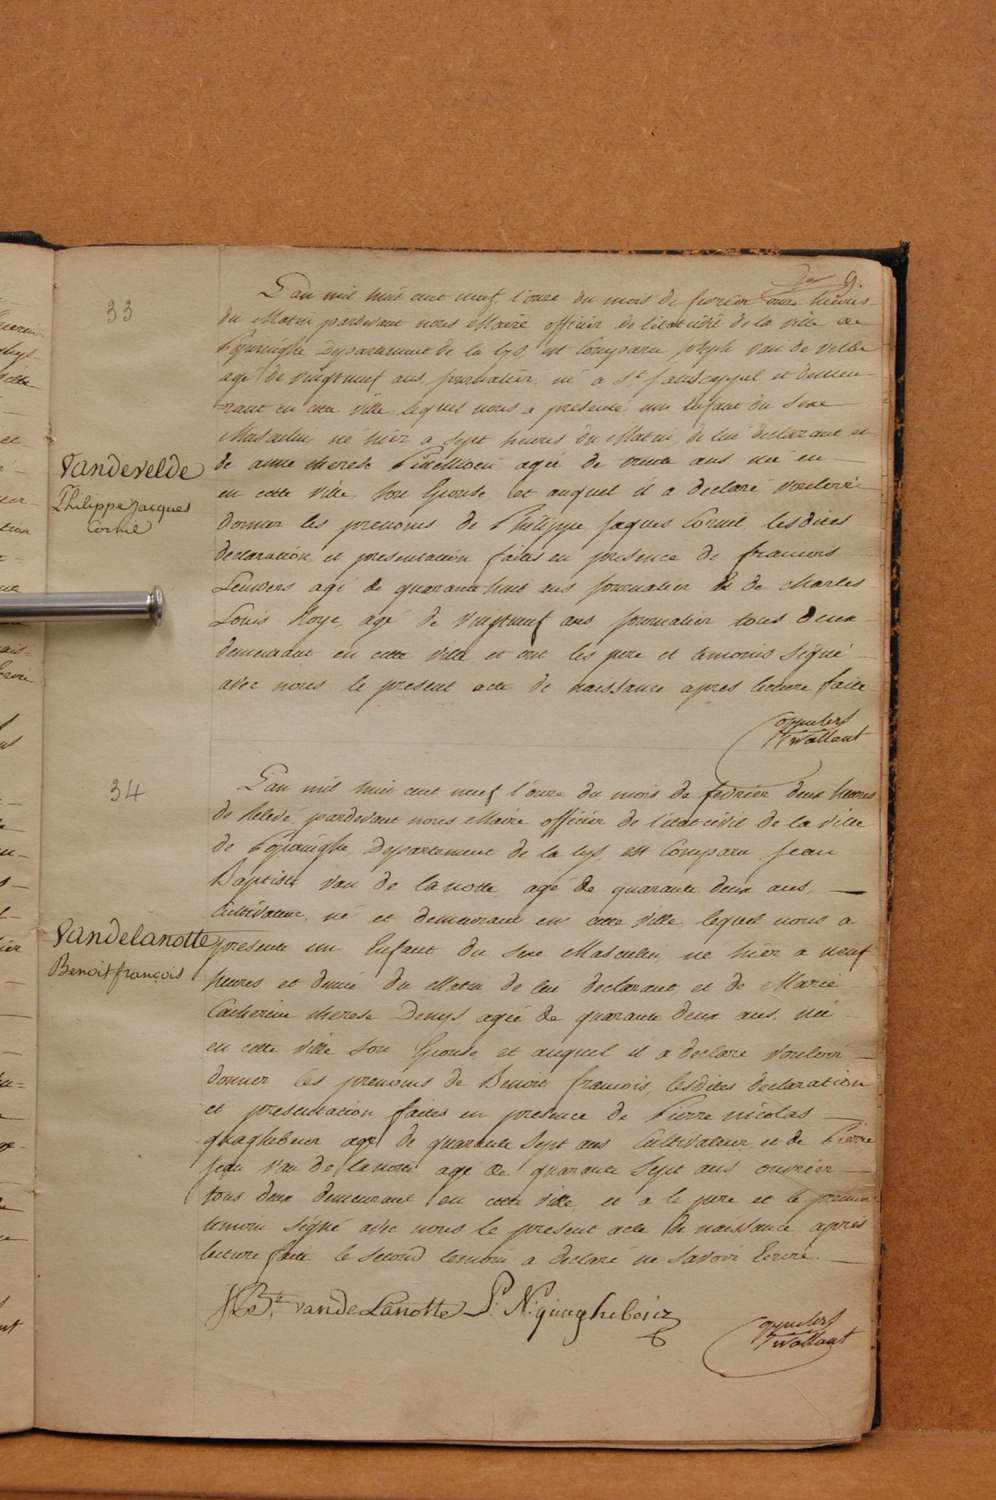 9.
33
L'an mil huit cent neuf, l'onze du mois de fevrier onze heures
du Matin pardevant nous Maire officier de l'état civil de la ville de
Poperinghe Departement de la Lys est Comparu joseph Van de Velde
agé de vingtneuf ans journalier, né a St. janscappel et demeu-
rant en cette ville lequel nous a presenté un Enfant du Sexe
Masculin né hier a Sept heures du Matin, de lui declarant et
de anne therese agée de trente ans née en
en cette ville, Son Epouse et auquel il a declaré Vouloir
donner les prenoms de Philippe Jaques Cornil, lesdites
declaration et presentation faites en presence de francois
Leuwers agé de quarante huit ans journalier & de Charles
Louis Hoye, agé de vingtneuf ans journalier tous deux
demeurant en cette ville et ont les pere et temoins Signé
avec nous le present acte de naissance apres lecture faite
Vandevelde
Philippe Jacques
Cornil
34
L'an mil huit cent neuf l'onze du mois de fevrier deux heures
de Relevé pardevant nous Maire officier de l'etat civil de la ville
de Poperinghe Departement de la Lys, est Comparu Jean
Baptiste Van de lanotte agé de quarante deux ans,
Cultivateur, né et demeurant en cette ville lequel nous a
presenté un Enfant du Sexe Masculin, né hier a neuf
heures et demie du Matin de lui declarant et de Marie
Catherine therese Denys agée de quarante deux ans, née
en cette ville Son Epouse et auquel il a declaré Vouloir
donner les prenoms de Benoit francois, lesdites declaration
et presentation faites en presence de Pierre nicolas
quaghebeur agé de quarante Sept ans Cultivateur et de Pierre
Jean Van de lanotte agé de quarante Sept ans ouvrier
tous deux demeurant en cette ville, et a le pere et le premier
temoin Signé avec nous le present acte de naissance après
lecture faite le Second temoin a declaré ne Savoir Ecrire.
Vandelanotte
Benoit françois
J. Bte. van de Lanotte P: N: quaghebeur